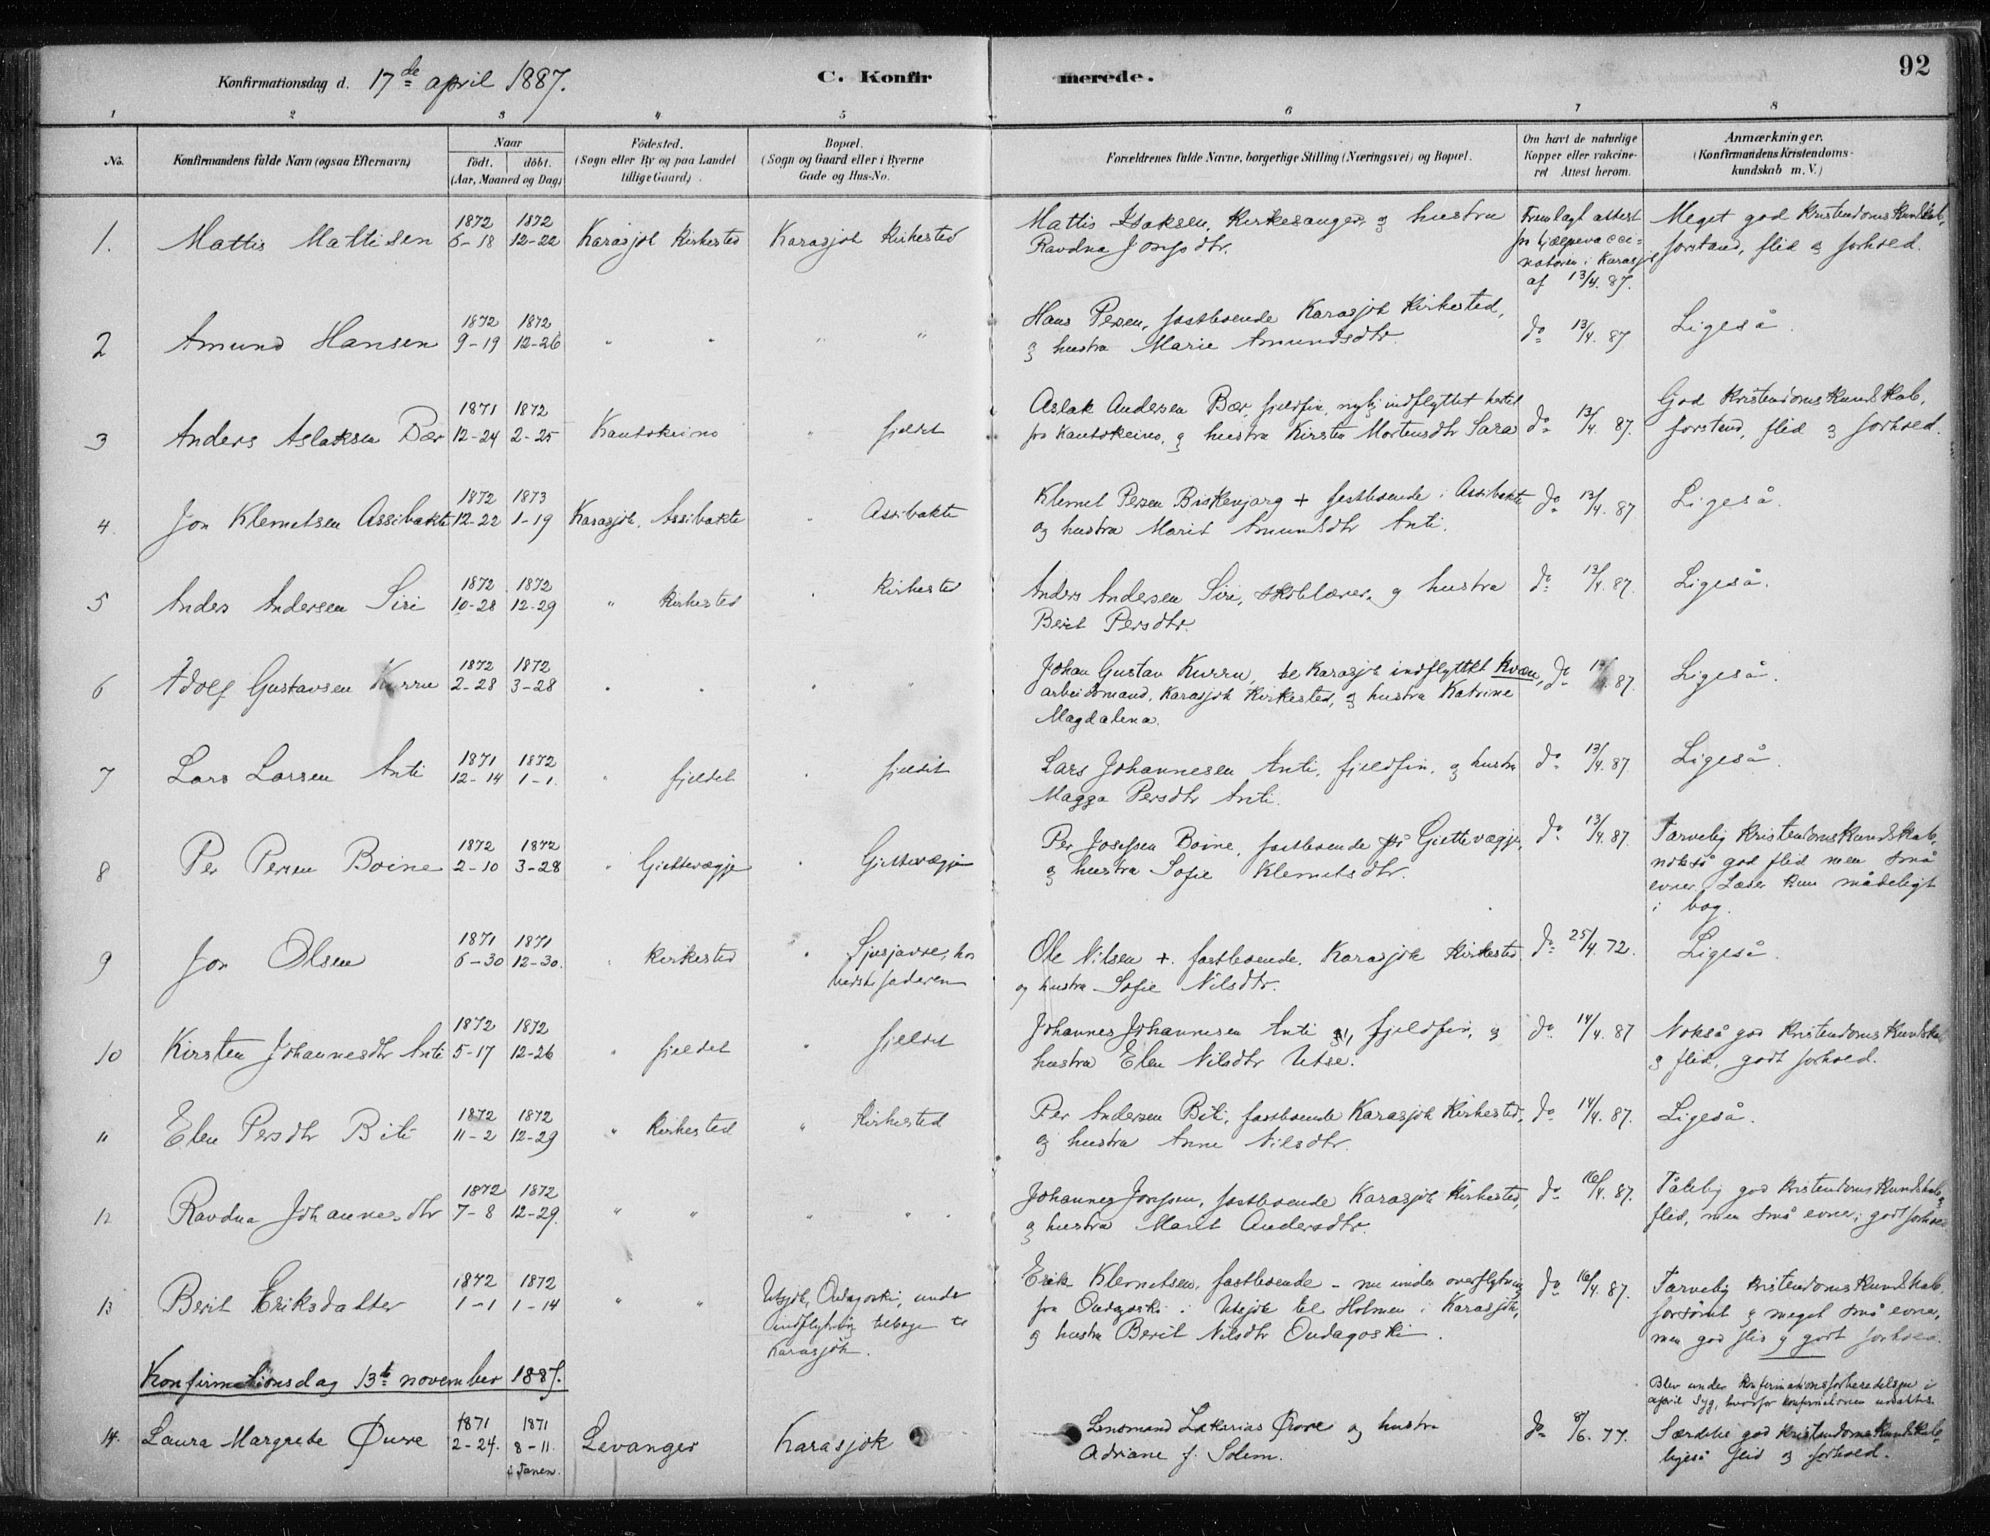 92
Konfirmationsdag d. 17de april 1887. C. Konfirmerede.
1 2 3 4 5 6 7 8
No. Konfirmandens fulde Navn (ogsaa Efternavn) Naar født. døbt. (Aar, Maaned og Dag) Fødested. (Sogn eller By og paa Landet tillige Gaard) Bopæl. (Sogn og Gaard eller i Byerne Gade og Hus-No. Forældrenes fulde Navne, borgerlige Stilling (Næringsvei) og Bopæl. Om havt de naturlige Kopper eller vakcineret Attest herom. Anmærkninger. (Konfirmandens Kristendomskundskab m. V.)
1. Mattis Mattisen 1872 6-18 1872 12-22 Karasjok Kirkested Karasjok Kirkested Mattis Isaksen, Kirkesanger, og hustru
Ravdna Jonsdtr. Fremlagt attest fra hjælpevaccinatøren i Karasjok af 13/4. 87. Meget god Kristendomskundskab, forstand, flid og forhold.
2 Amund Hansen 1872 9-19 1872 12-26 " " " " Hans Persen, fastboende Karasjok Kirkested,
og hustru Marie Amundsdtr. do 13/4. 87 Ligeså.
3 Anders Aslaksen Bær 1871 12-24 1872 2-25 Kautokeino " fjeldet Aslak Andersen Bær, fjeldfin, nylig indflyttet hertil
fra Kautokeino, og hustru Kirsten Mortensdtr Sara do 13/4. 87. God Kristendomskundskab, forstand, flid og forhold.
4. Jon Klemetsen Assebakte 1872 12-22 1873 1-19 Karasjok, Assibakte " Assibakte Klemet Persen Biskenjarg + fastboende i Assibakte
og hustru Marit Amundsdtr Anti. do 13/4. 87 Ligeså.
5 Anders Andersen Siri 1872 10-28 1872 12-29 " Kirkested " Kirkested Anders Andersen Siri, skolelærer, og hustru
Berit Persdtr. do 13/4. 87. Ligeså.
6 Adolf Gustavsen Kurru 1872 2-28 1872 3-28 " " " " Johan Gustav Kurru, til Karasjok indflyttet Kvæn,
arbeidsmand, Karasjok Kirkested, og hustru Katrine
Magdalena. do 87. Ligeså.
7 Lars Larsen Anti 1871 12-14 1872 1-1. " fjeldet " fjeldet Lars Johannesen Anti, fjeldfin, og hustru
Magga Persdtr Anti. do 13/4. 87 Ligeså.
8 Per Persen Boine 1872 2-10 1872 3-28 " Giettevægje " Giettevægje Per Josefsen Boine, fastboende på Giettevægje,
og hustru Sofie Klemetsdtr. do 13/4. 87. Tarvelig Kristendomskundskab, nokså god flid men små evner. Læser kun mådeligt i bog.
9 Jon Olsen 1871 6-30 1871 12-30. " Kirkested " hos fosterfaderen Ole Nilsen +. fastboende. Karasjok Kirkested
og hustru Sofie Nilsdtr. do 25/4. 72. Ligeså.
10 Kirsten Johannesdtr Anti 1872 5-17 1872 12-26 " fjeldet " fjeldet Johannes Johannesen Anti, fjeldfin, og
hustru Elen Nilsdtr Utse. do 14/4. 87 Nokså god Kristendomskundskab og flid, godt forhold.
11 Elen Persdtr Biti 1872 11-2 1872 12-29 " Kirkested " Kirkested Per Andersen Biti, fastboende Karasjok Kirkested,
og hustru Anne Nilsdtr. do 14/4. 87. Ligeså.
12 Ravdna Johannesdtr 1872 7-8 1872 12-29. " " " " Johannes Jonssen, fastboende Karasjok Kirkested,
og hustru Marit Andersdtr. do 16/4. 87. Tålelig god Kristendomskundskab, flid, men små evner; godt forhold
13 Berit Eriksdatter 1872 1-1 1872 1-14 " " Utsjok, Oudagoski, under indflytning tilbage til Karasjok. Erik Klemetsen, fastboende - nu under overflytning
fra Oudagoski i Utsjok til Holmen i Karasjok,
og hustru Berit Nilsdtr Oudagoski. do 16/4. 87. Tarvelig Kristendomskundskab, forsømt og meget små evner, men god flid og godt forhold.
Konfirmationsdag 13te november 1887.
14. Laura Margrete Øwre 1871 2-24. 1871 8-11. i Tanen. Levanger Karasjok Lensmand Zakarias Øwre og hustru
Adriane f. Solem. do 8/6. 77. Blev under konfirmationsforberedelsen i april syg, hvorfor konfirmationen udsattes. Særdeles god Kristendomskundskab, ligeså flid og forhold.